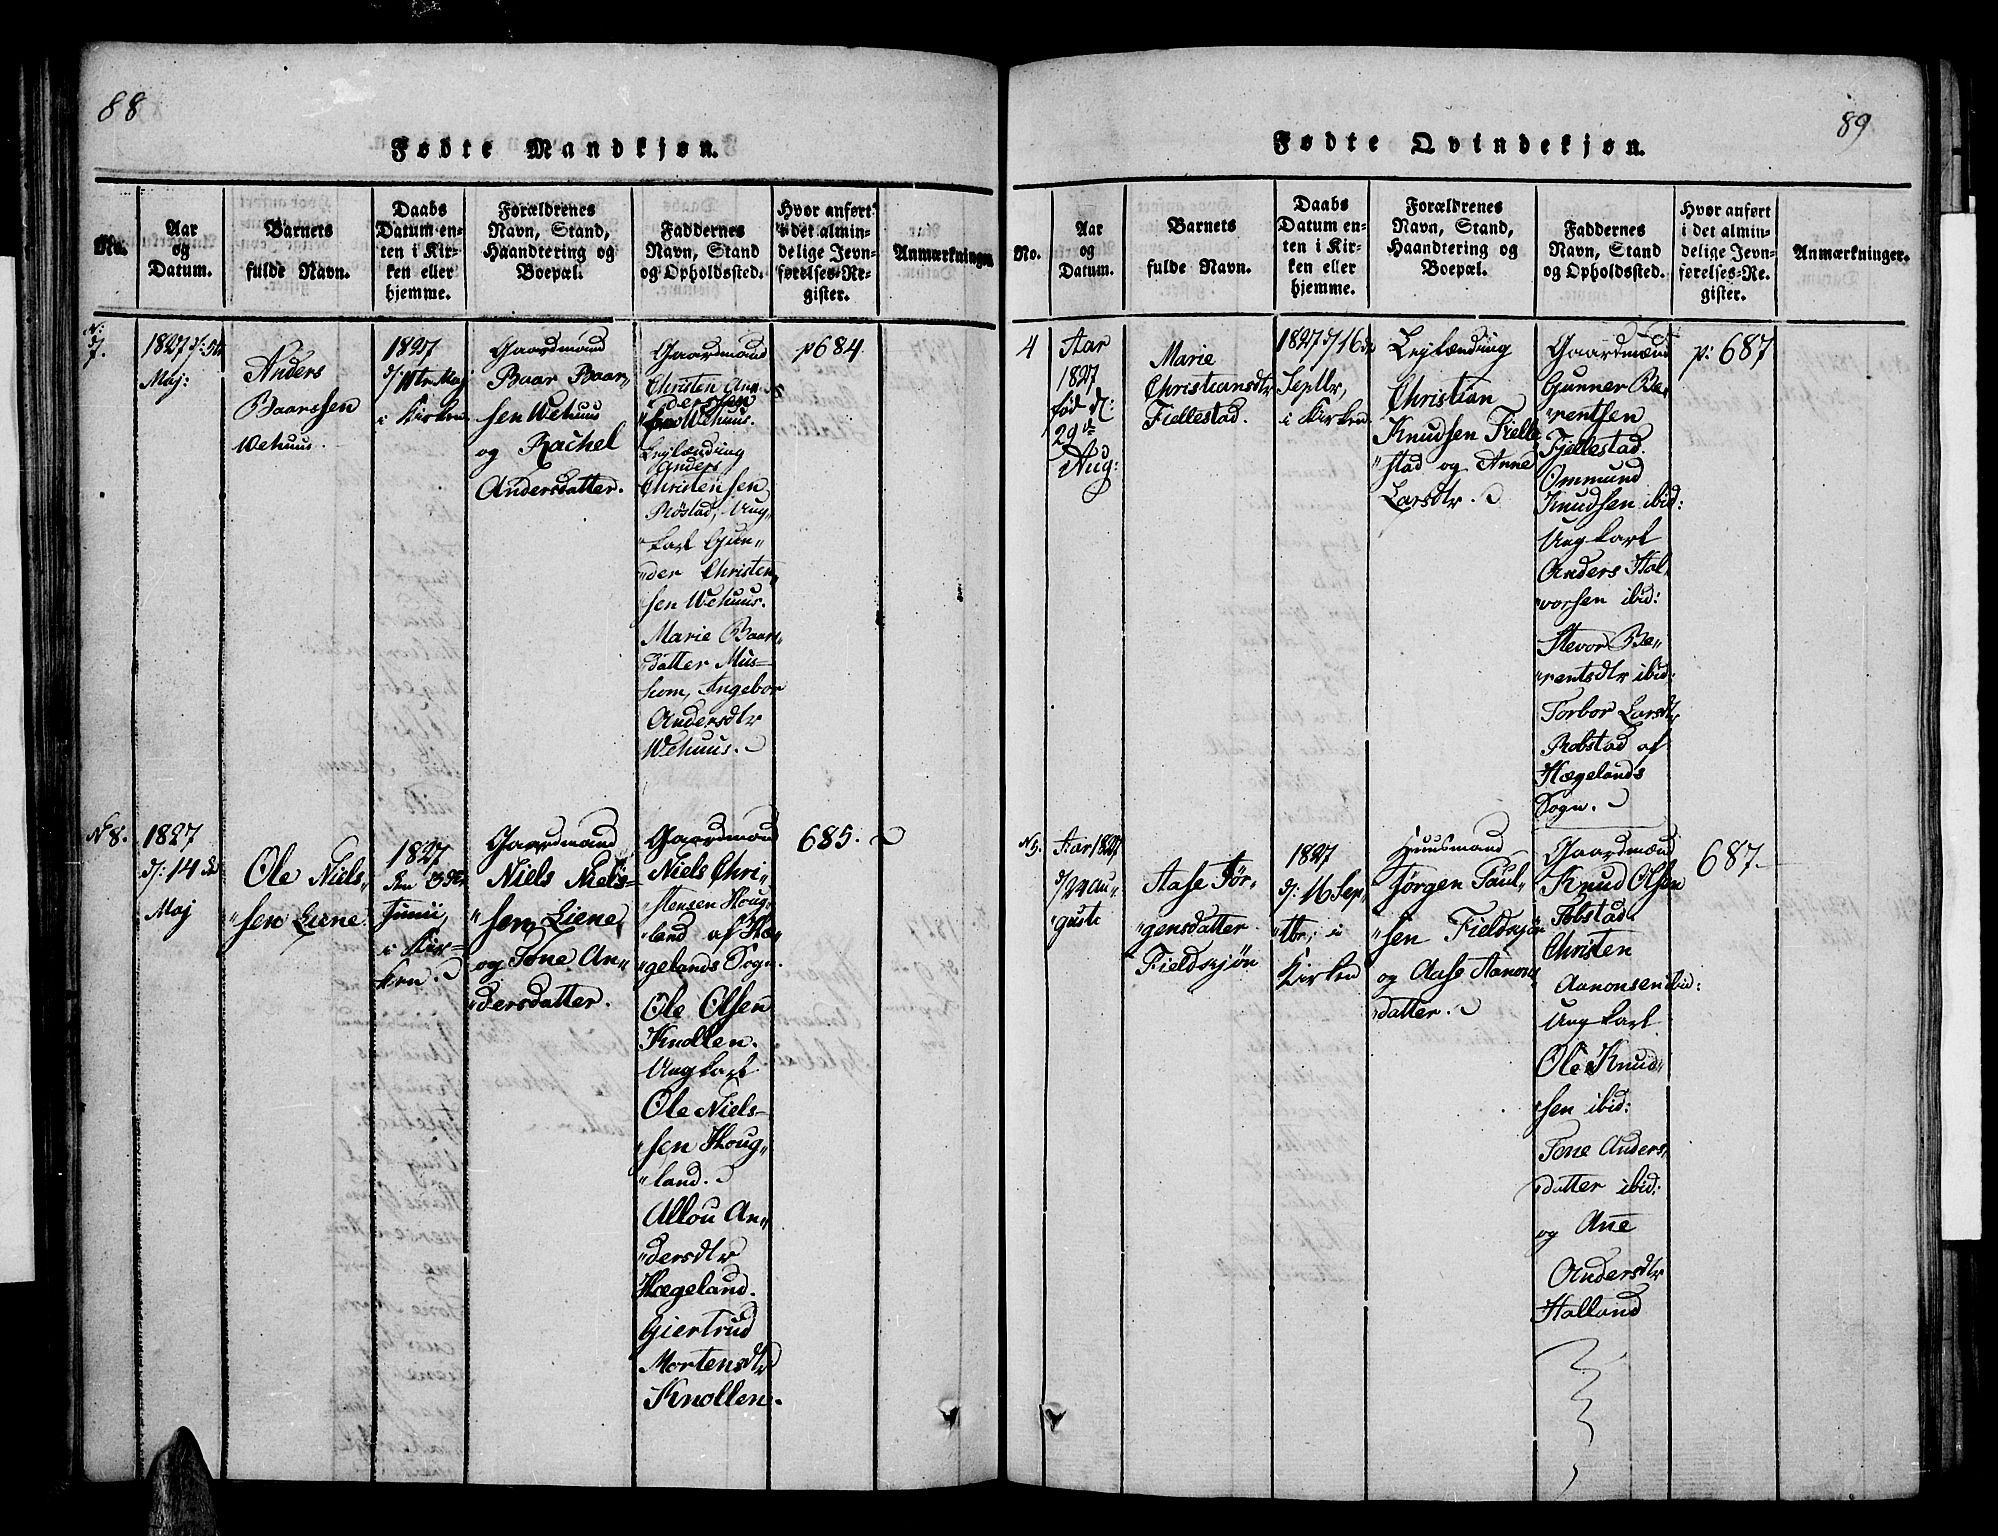 88
Fødte Mandkjøn.
No.
Aar
og
Datum.
Barnets
fulde Navn.
Daabs
Datum en-
ten i Kir-
ken eller
hjemme.
Forældrenes
Navn, Stand,
Haandtering og
Boepæl.
Faddernes
Navn, Stand
og Opholdssted.
Hvor anført
i det almin-
delige Jevn-
førelses-Re-
gister.
Anmærkninger
N:
7.
1827 d: 5te
Maj:
Anders
Baarssen
Wehuus.
1827
Maj
i Kirken
Gaardmand
Baar Baar„
sen Wehuus
og Rachel
Andersdatter.
Gaardmand
Christen An„
dersen
Wehuus.
Lejlænding
Anders
Christensen
Røstad, Ung„
„karl Gun„
„der Christen„
sen Wehuus.
Marie Baars„
„datter Mus-
hom, Angebor
Andersdtr
Wehuus.
p 684.
N 8.
1827
d: 14 de
Maj
Ole Niels„
„sen Liene
1827
den 3die
Junii,
i Kir-
ken.
Gaardmand
Niels Niels-
„sen Liene,
og Tone An„
„dersdatter.
Gaardmand
Niels Chri-
„stensen Houg„
„land af Hæ„
„gelands Sogn.
Ole Olsen
Knollen.
Ungkarl
Ole Niels-
„sen Houg„
„land.
Allou An„
„dersdtr
Hægeland.
Giertrud
Mortensdtr
Knollen.
685.
89
Fødte Qvindekjøn.
No.
Aar
og
Datum.
Barnets
fulde Navn.
Daabs
Datum en-
ten i Kir-
ken eller
hjemme.
Forældrenes
Navn, Stand,
Haandtering og
Boepæl.
Faddernes
Navn, Stand
og Opholdssted.
Hvor anført
i det almin-
delige Jevn-
førelses-Re-
gister.
Anmærkninger.
4
Aar
1827
fød d:
29de
Aug:
Marie
Christiansdtr
Fiellestad.
1827 d/16de
Septbr,
i Kirken
Lejlænding
Christian
Knudsen Fielle
„stad og Anne
Larsdtr.
Gaardmænd
Gunner Be„
„rentsen
Fjellestad.
Ommund
Knudsen ibid:
Ungkarl
Anders Hal„
„vorsen ibid:
Stevor Be„
„rentsdtr ibid:
Torbor Larsdtr
Robstad af
Hægelands
Sogn.
N 5.
Aar 1827
d/24 Au„
„gusti
Aase Jør„
„gensdatter
Fieldsgjøn
1827
d: 16 Sep„
„tbr, i
Kirken
Huusmand
Jørgen Paul„
„sen Fieldsgjøn
og Aase Aanons„
„datter.
Gaardmænd
Knud Olsen
Tobstad.
Christen
Aanonsen ibid:
Ungkarl
Ole Knud„
„sen ibid:
Tone Anders„
„datter ibid:
og Ane
Andersdtr
Halland
p: 687
687.